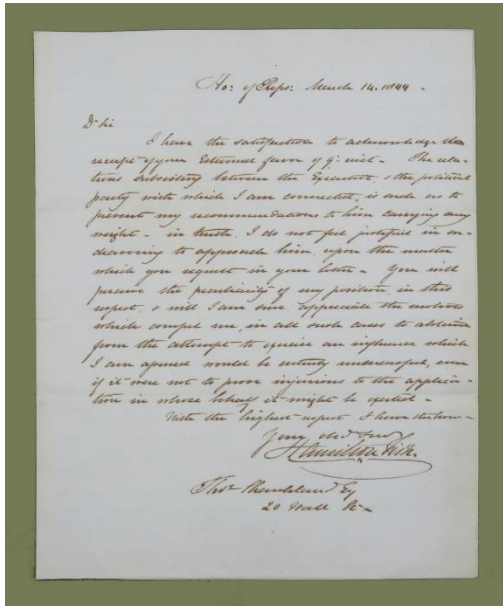 Ho: of Reps: March 14. 1844.
Dr Sir
I have the satisfaction to acknowledge the
receipt of your Esteemed favor of 9th inst - The rela-
tions subsisting between the Executive & the political
party with which I am connected, is such as to
prevent my recommendations to him carrying any
weight - in truth, I do not feel justified in en-
deavoring to approach him, upon the matter
which you request in your letter - You will
perceive the peculiarity of my position, in this
respect, & will I am sure, appreciate the motives
which compel me, in all such cases to abstain
from the attempt to exercise an influence which
I am assured would be entirely unsuccessful, even
if it were not to prove injurious to the applica-
tion in whose behalf it might be exerted -
With the highest respect I have the honor
Your Obd Servt
Hamilton Fish.
Thos Esq
20 Wall St -